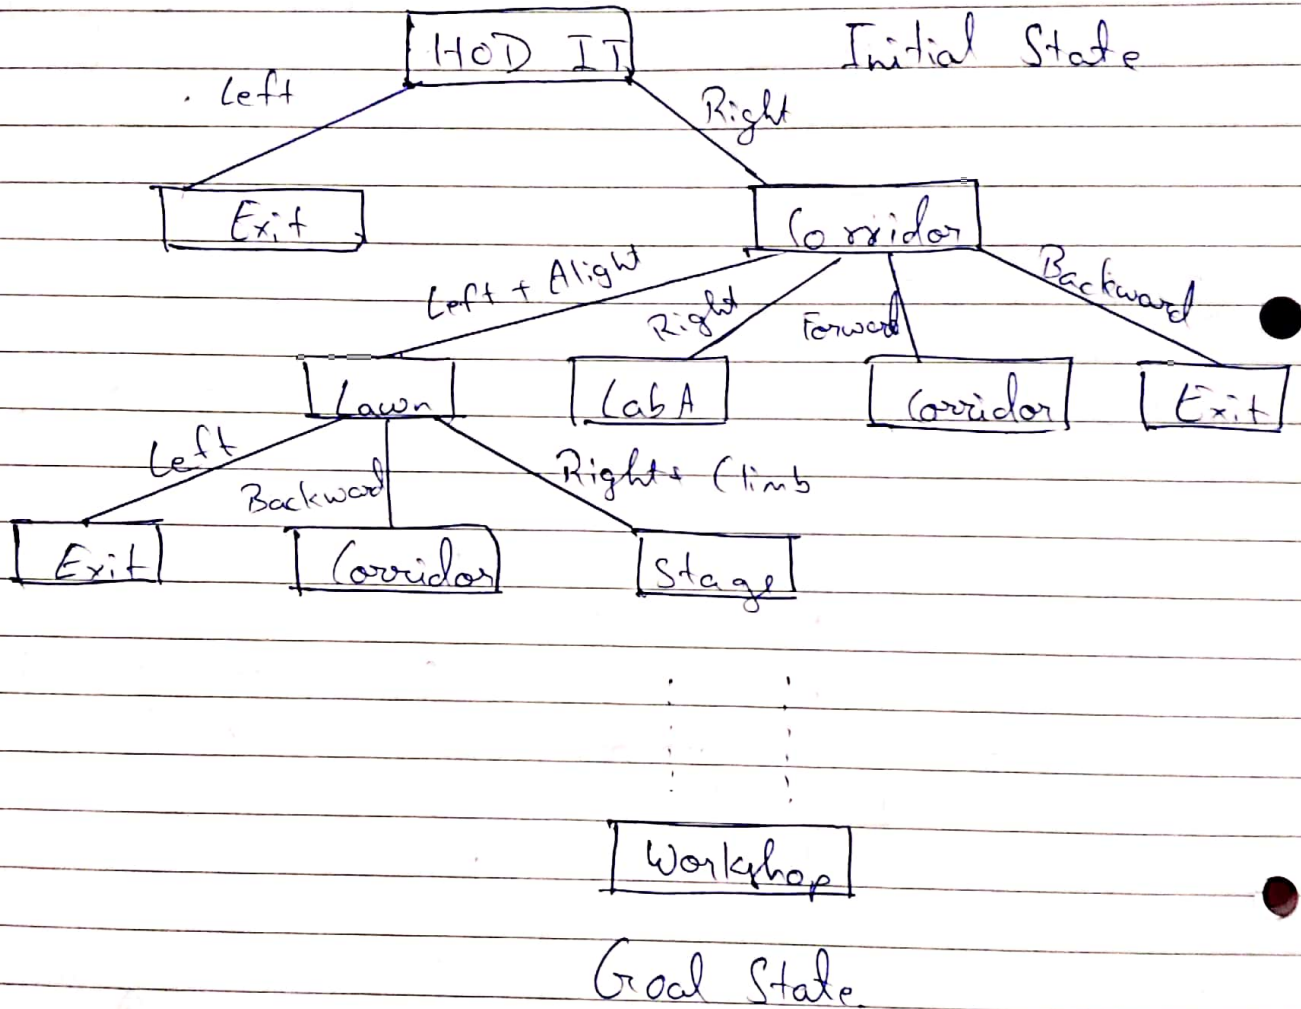 HOD IT
Initial State
Left
Right
Exit
Corridor
Left + Alight
Right
Forward
Backward
Lawn
Lab A
Corridor
Exit
Left
Backward
Right + Climb
Exit
Corridor
Stage
Workshop
Goal State